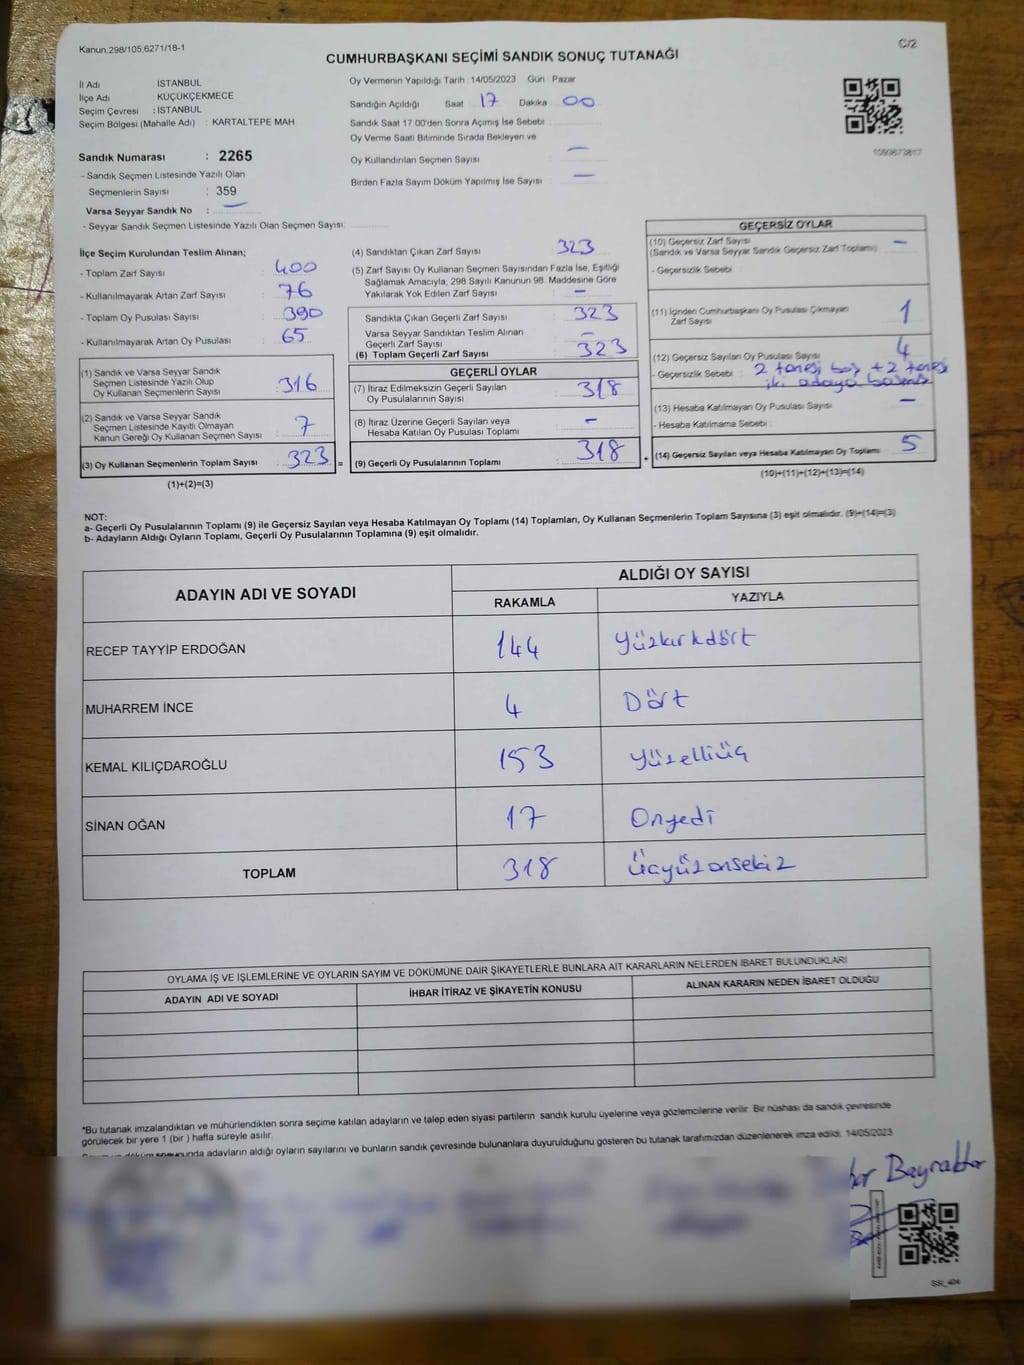 Kanun,298/105,6271/18-1
C/2
CUMHURBAŞKANI SEÇİMİ SANDIK SONUÇ TUTANAĞI
İl Adı : İSTANBUL
İlçe Adı : KÜÇÜKÇEKMECE
Seçim Çevresi : İSTANBUL
Seçim Bölgesi (Mahalle Adı) : KARTALTEPE MAH
Sandık Numarası : 2265
- Sandık Seçmen Listesinde Yazılı Olan
Seçmenlerin Sayısı : 359
Varsa Seyyar Sandık No : –
- Seyyar Sandık Seçmen Listesinde Yazılı Olan Seçmen Sayısı:
Oy Vermenin Yapıldığı Tarih : 14/05/2023 Gün Pazar
Sandığın Açıldığı Saat 17 Dakika 00
Sandık Saat 17.00'den Sonra Açımış İse Sebebi :
Oy Verme Saati Bitiminde Sırada Bekleyen ve
Oy Kullandırılan Seçmen Sayısı –
Birden Fazla Sayım Döküm Yapılmış İse Sayısı : –
1093673817
İlçe Seçim Kurulundan Teslim Alınan;
- Toplam Zarf Sayısı : 400
- Kullanılmayarak Artan Zarf Sayısı : 76
- Toplam Oy Pusulası Sayısı : 390
- Kullanılmayarak Artan Oy Pusulası : 65
(1) Sandık ve Varsa Seyyar Sandık
Seçmen Listesinde Yazılı Olup
Oy Kullanan Seçmenlerin Sayısı : 316
(2) Sandık ve Varsa Seyyar Sandık
Seçmen Listesinde Kayıtlı Olmayan
Kanun Gereği Oy Kullanan Seçmen Sayısı : 7
(3) Oy Kullanan Seçmenlerin Toplam Sayısı : 323 =
(1)+(2)=(3)
(4) Sandıktan Çıkan Zarf Sayısı 323
(5) Zarf Sayısı Oy Kullanan Seçmen Sayısından Fazla İse, Eşitliği
Sağlamak Amacıyla, 298 Sayılı Kanunun 98. Maddesine Göre
Yakılarak Yok Edilen Zarf Sayısı : –
Sandıkta Çıkan Geçerli Zarf Sayısı : 323
Varsa Seyyar Sandıktan Teslim Alınan
Geçerli Zarf Sayısı : –
(6) Toplam Geçerli Zarf Sayısı : 323
GEÇERLİ OYLAR
(7) İtiraz Edilmeksizin Geçerli Sayılan
Oy Pusulalarının Sayısı : 318
(8) İtiraz Üzerine Geçerli Sayılan veya
Hesaba Katılan Oy Pusulası Toplamı : –
(9) Geçerli Oy Pusulalarının Toplamı : 318 +
GEÇERSİZ OYLAR
(10) Geçersiz Zarf Sayısı –
(Sandık ve Varsa Seyyar Sandık Geçersiz Zarf Toplamı) :
- Geçersizlik Sebebi
(11) İçinden Cumhurbaşkanı Oy Pusulası Çıkmayan
Zarf Sayısı 1
(12) Geçersiz Sayılan Oy Pusulası Sayısı 4
- Geçersizlik Sebebi : 2 tanesi boş +2 tanesi
iki adaya
(13) Hesaba Katılmayan Oy Pusulası Sayısı –
- Hesaba Katılmama Sebebi :
(14) Geçersiz Sayılan veya Hesaba Katılmayan Oy Toplamı : 5
(10)+(11)+(12)+(13)=(14)
NOT:
a- Geçerli Oy Pusulalarının Toplamı (9) ile Geçersiz Sayılan veya Hesaba Katılmayan Oy Toplamı (14) Toplamları, Oy Kullanan Seçmenlerin Toplam Sayısına (3) eşit olmalıdır. (9)+(14)=(3)
b- Adayların Aldığı Oyların Toplamı, Geçerli Oy Pusulalarının Toplamına (9) eşit olmalıdır.
ADAYIN ADI VE SOYADI
ALDIĞI OY SAYISI
RAKAMLA YAZIYLA
RECEP TAYYİP ERDOĞAN 144 Yüzkırkdört
MUHARREM İNCE 4 Dört
KEMAL KILIÇDAROĞLU 153 Yüzelliüç
SİNAN OĞAN 17 Onyedi
TOPLAM 318 Üçyüzonsekiz
OYLAMA İŞ VE İŞLEMLERİNE VE OYLARIN SAYIM VE DÖKÜMÜNE DAİR ŞİKAYETLERLE BUNLARA AİT KARARLARIN NELERDEN İBARET BULUNDUKLARI
ADAYIN ADI VE SOYADI
İHBAR İTİRAZ VE ŞİKAYETİN KONUSU
ALINAN KARARIN NEDEN İBARET OLDUĞU
*Bu tutanak imzalandıktan ve mühürlendikten sonra seçime katılan adayların ve talep eden siyasi partilerin sandık kurulu üyelerine veya gözlemcilerine verilir. Bir nüshası da sandık çevresinde
görülecek bir yere 1 (bir ) hafta süreyle asılır.
adayların aldığı oyların sayılarını ve bunların sandık çevresinde bulunanlara duyurulduğunu gösteren bu tutanak tarafımızdan düzenlenerek imza edildi. 14/05/2023
Bayraktar
SSI_404